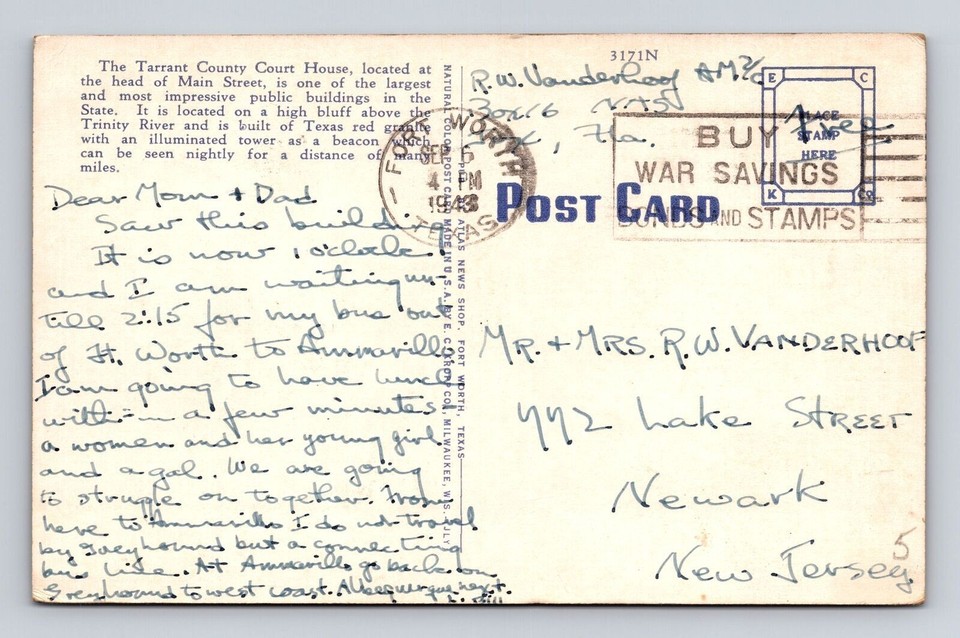 The Tarrant County Court House, located at
the head of Main Street, is one of the largest
and most impressive public buildings in the
State. It is located on a high bluff above the
Trinity River and is built of Texas red granite
with an illuminated tower as a beacon which
can be seen nightly for a distance of many
miles.
Dear Mom + Dad
Saw this build.
It is now 1 o'clock
and I am waiting un-
till 2:15 for my bus out
of Ft. Worth to Ammarillo
I am going to have lunch
with in a few minutes
a women and her young girl
and a gal. We are going
to struggle on together. From
here to Ammarillo I do not travel
by Greyhound but a connecting
bus line. At Ammarillo go back on
Greyhound to west coast. Albequerque next.
NATURAL COLOR POST CARD MADE IN U.S.A. BY E. C. KROPP CO., MILWAUKEE, WIS.
ATLAS NEWS SHOP, FORT WORTH, TEXAS
3171N
R.W. Vanderhoof AM2/c
Box 16 NAS
Fla.
Free
E C
PLACE
STAMP
HERE
K Co
FORT WORTH
SEP 6
4 PM
1943
TEXAS
BUY
WAR SAVINGS
BONDS AND STAMPS
POST CARD
MR. + MRS. R.W. VANDERHOOF
772 Lake STREET
Newark
New Jersey
5